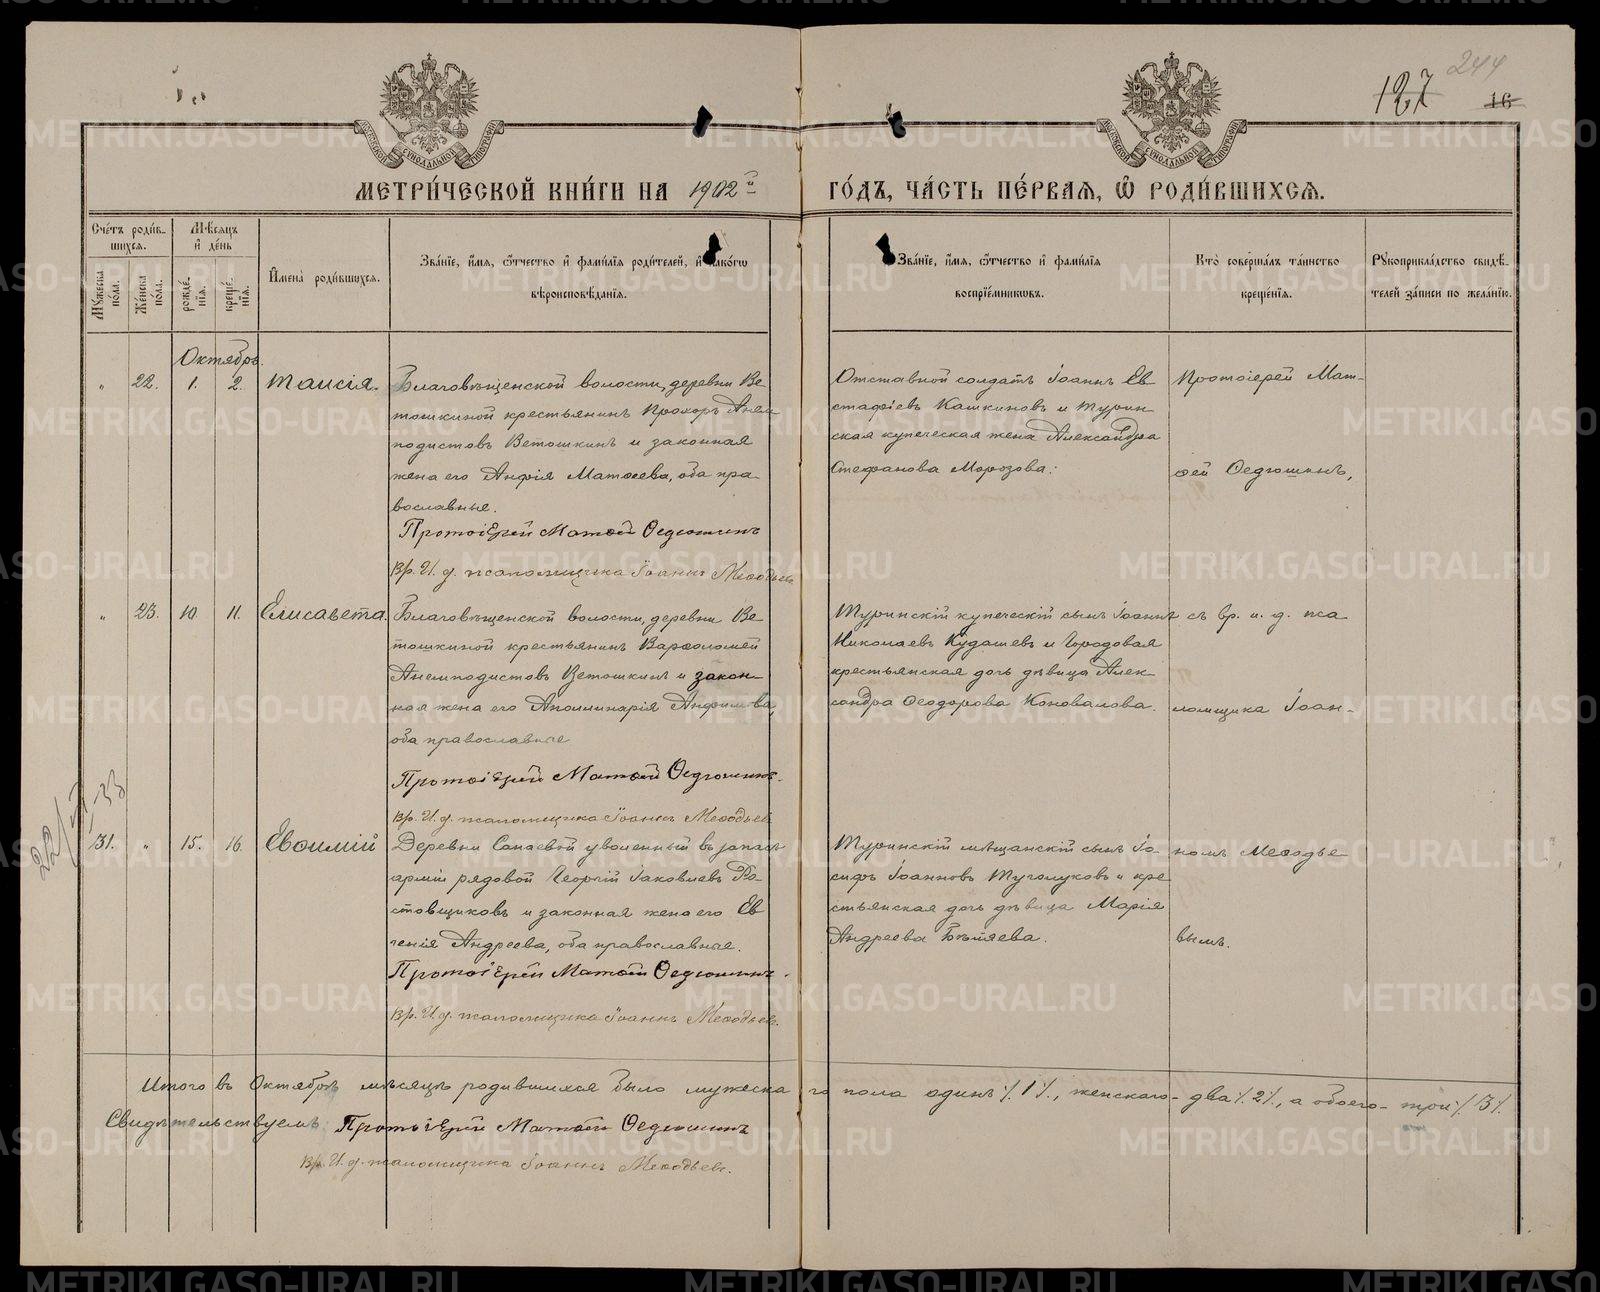 244
127
16
МЕТРИ́ЧЕСКОЙ КНИ́ГИ НА 1902й ГО́ДЪ, ЧА́СТЬ ПЕ́РВАЯ, Ѿ РОДИ́ВШИХСЯ.
Сче́тъ роди́в-
шихся.
Мꙋ́жеска по́ла.
Же́нска по́ла.
Мѣ́сяцъ и́ де́нь
рожде́нїя.
креще́нїя.
И҆мена̀ роди́вшихся.
Зва́нїе, и҆́мя, ѻ҆́тчество и҆ фами́лїя роди́телей, и҆ како́гѡ
вѣроисповѣ́данїя.
Зва́нїе, и҆́мя, ѻ҆́тчество и҆ фами́лїя
воспрїе́мникѡвъ.
Кто̀ соверша́лъ та́инство
креще́нїя.
Рꙋкоприкла́дство свидѣ́-
телей за́писи по жела́нїю.
Октябрь.
" 22. 1. 2. Таисія.
Благовѣщенской волости, деревни Ве
тошкиной крестьянинъ Прохоръ Анем
подистовъ Ветошкинъ и законная
жена его Анфія Матѳеева, оба пра
вославные.
Протоіерей Матѳей Ѳедюшинъ
Вр. И. д. псаломщика Іоаннъ Меѳодьев
Отставной солдатъ Іоаннъ Ев
стафіевъ Кашкиновъ и Турин
ская купеческая жена Александра
Стефанова Морозова.
Протоіерей Мат-
ѳей Ѳедюшинъ,
" 23. 10. 11. Елисавета.
Благовѣщенской волости, деревни Ве
тошкиной крестьянинъ Варѳоломей
Анемподистовъ Ветошкинъ и закон-
ная жена его Аполлинарія Анфимова,
оба православные
Протоіерей Матѳей Ѳедюшинъ.
Вр. И. д. псаломщика Іоаннъ Меѳодьев
Туринскій купеческій сынъ Іоаннъ
Николаевъ Кудашевъ и Городовая
крестьянская дочь дѣвица Алек-
сандра Ѳеодорова Коновалова.
съ вр. и. д. пса
ломщика Іоан-
31. " 15. 16. Евѳимій
Деревни Сапаевой уволенный въ запасъ
арміи рядовой Георгій Іаковлевъ Ро-
стовщиковъ и законная жена его Ев
генія Андреева, оба православные.
Протоіерей Матѳей Ѳедюшинъ.
Вр. И. д. псаломщика Іоаннъ Меѳодьев.
Туринскій мѣщанскій сынъ Іо-
сифъ Іоанновъ Туголуковъ и кре
стьянская дочь дѣвица Марія
Андреева Бѣляева.
номъ Меѳодье
вымъ.
Итого въ Октябрѣ мѣсяцѣ родившихся было мужеска го пола одинъ ./. 1 ./., женскаго - два ./. 2 ./., а обоего - три ./. 3 ./.
Свидѣтельствуемъ: Протоіерей Матѳей Ѳедюшинъ
Вр. И. д. псаломщика Іоаннъ Меѳодьев.
METRIKI.GASO-URAL.RU